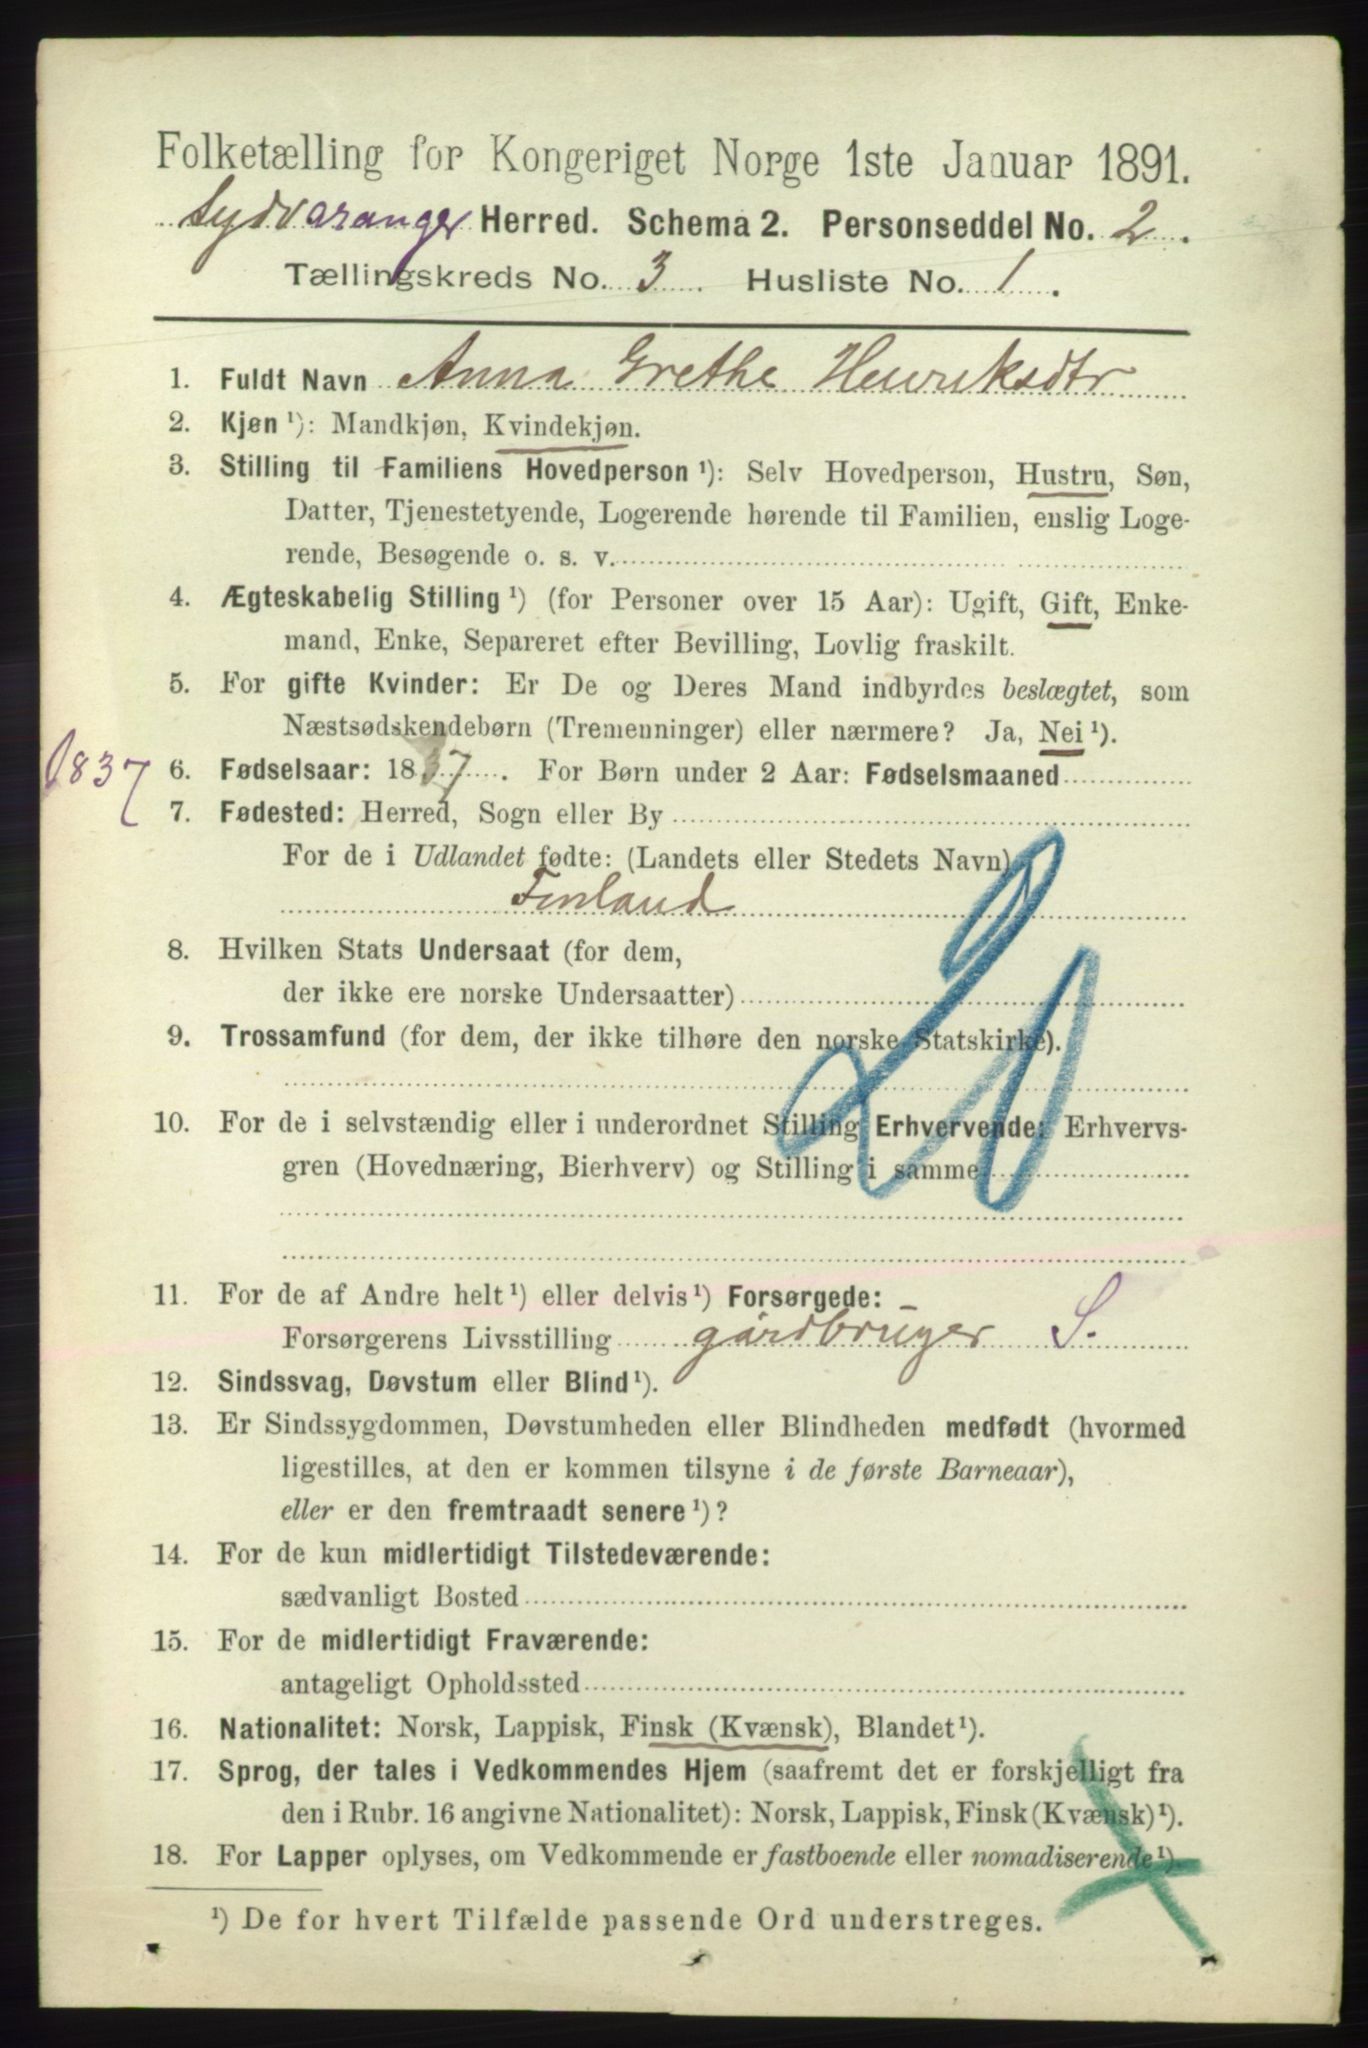 Folketælling for Kongeriget Norge 1ste Januar 1891.
Sydvaranger Herred. Schema 2. Personseddel No. 2.
Tællingskreds No. 3. Husliste No. 1.
1. Fuldt Navn Anna Grethe Henriksdtr
2. Kjøn ¹): Mandkjøn, Kvindekjøn.
3. Stilling til Familiens Hovedperson ¹): Selv Hovedperson, Hustru, Søn,
Datter, Tjenestetyende, Logerende hørende til Familien, enslig Loge-
rende, Besøgende o. s. v.
4. Ægteskabelig Stilling ¹) (for Personer over 15 Aar): Ugift, Gift, Enke-
mand, Enke, Separeret efter Bevilling, Lovlig fraskilt.
5. For gifte Kvinder: Er De og Deres Mand indbyrdes beslægtet, som
Næstsødskendebørn (Tremenninger) eller nærmere? Ja, Nei ¹).
1837 6. Fødselsaar: 1837. For Børn under 2 Aar: Fødselsmaaned
7. Fødested: Herred, Sogn eller By
For de i Udlandet fødte: (Landets eller Stedets Navn)
Finland
8. Hvilken Stats Undersaat (for dem,
der ikke ere norske Undersaatter)
9. Trossamfund (for dem, der ikke tilhøre den norske Statskirke).
10. For de i selvstændig eller i underordnet Stilling Erhvervende: Erhvervs-
gren (Hovednæring, Bierhverv) og Stilling i samme
20
11. For de af Andre helt ¹) eller delvis ¹) Forsørgede:
Forsørgerens Livsstilling gårdbruger S.
12. Sindssvag, Døvstum eller Blind ¹).
13. Er Sindssygdommen, Døvstumheden eller Blindheden medfødt (hvormed
ligestilles, at den er kommen tilsyne i de første Barneaar),
eller er den fremtraadt senere ¹)?
14. For de kun midlertidigt Tilstedeværende:
sædvanligt Bosted
15. For de midlertidigt Fraværende:
antageligt Opholdssted
16. Nationalitet: Norsk, Lappisk, Finsk (Kvænsk), Blandet ¹).
17. Sprog, der tales i Vedkommendes Hjem (saafremt det er forskjelligt fra
den i Rubr. 16 angivne Nationalitet): Norsk, Lappisk, Finsk (Kvænsk) ¹).
18. For Lapper oplyses, om Vedkommende er fastboende eller nomadiserende ¹).
¹) De for hvert Tilfælde passende Ord understreges.